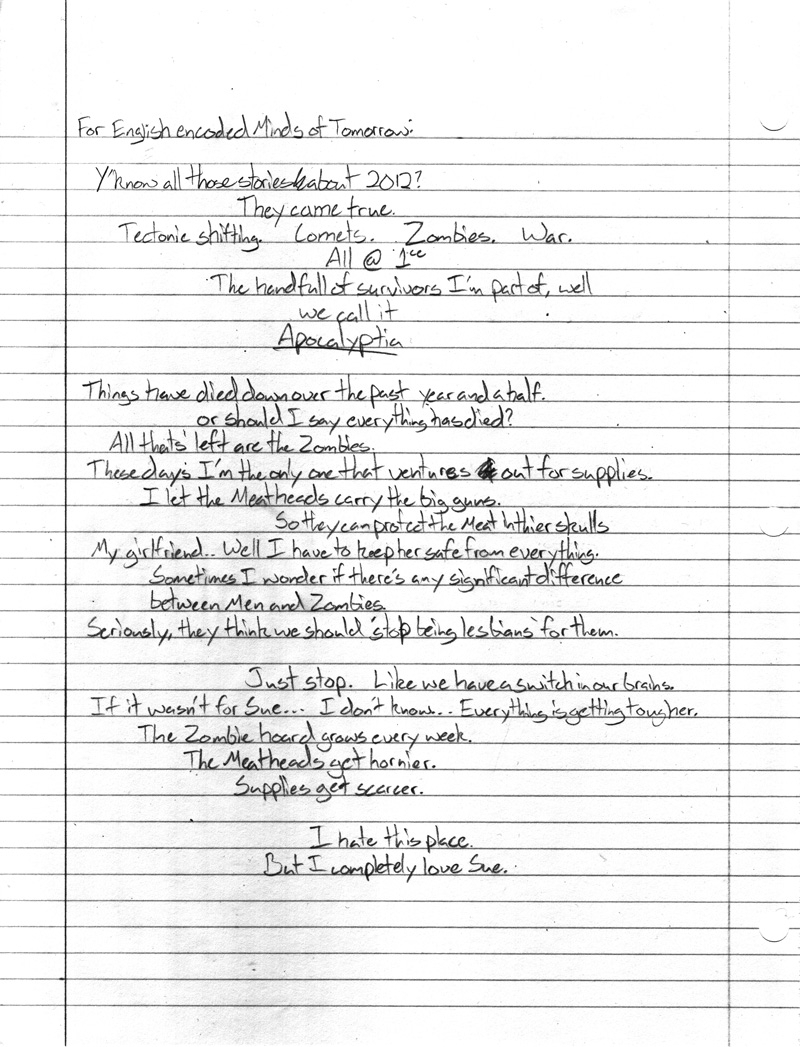 For English encoded Minds of Tomorrow:
Y'know all those stories about 2012?
They came true.
Tectonic shifting. Comets. Zombies. War.
All @ 1ce
The handfull of survivors I'm part of, well
we call it
Apocalyptia
Things have died down over the past year and a half.
or should I say everything has died?
All thats' left are the Zombies.
These days I'm the only one that ventures out for supplies.
I let the Meatheads carry the big guns.
So they can protect the Meat in thier skulls
My girlfriend.. Well I have to keep her safe from everything.
Sometimes I wonder if there's any significant difference
between Men and Zombies.
Seriously, they think we should 'stop being lesbians' for them.
Just stop. Like we have a switch in our brains.
If it wasn't for Sue... I don't know... Everything is getting tougher.
The Zombie hoard grows every week.
The Meatheads get hornier.
Supplies get scarcer.
I hate this place.
But I completely love Sue.